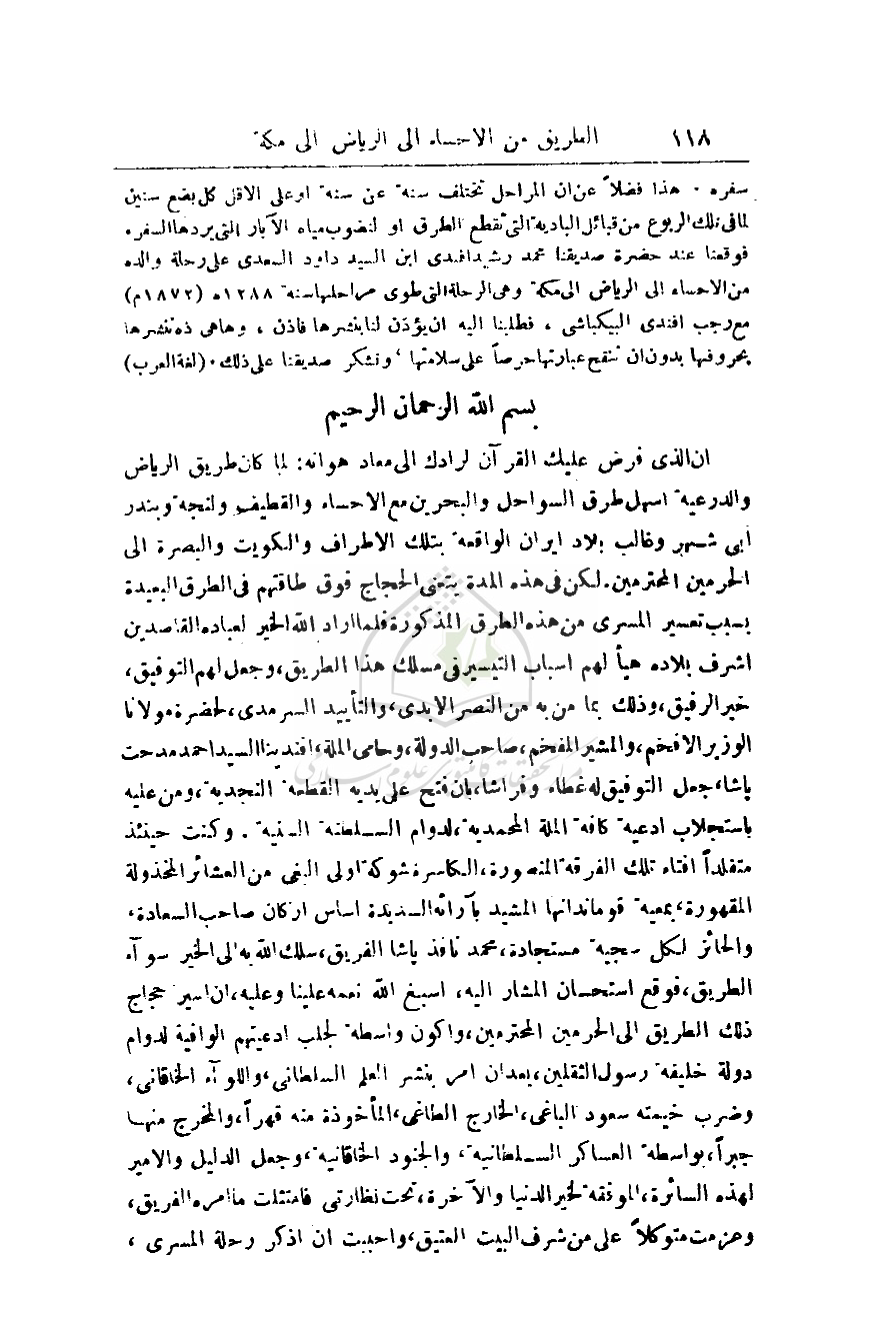 ١١٨ الطريق من الاحساء الى الرياض الى مكة
سفره · هذا فضلاً عن ان المراحل تختلف سنة عن سنة او على الاقل كل بضع سنين
لما فى تلك الربوع من قبائل البادية التى تقطع الطرق او لنضوب مياه الآبار التى يردها السفر.
فوقعنا عند حضرة صديقنا محمد رشيد افندى ابن السيد داود السعدى على رحلة والده
من الاحساء الى الرياض الى مكة وهى الرحلة التى طوى مراحلها سنة ١٢٨٨ه (١٨٧٢م)
مع رجب افندى البيكباشى ، فطلبنا اليه ان يؤذن لنا بنشرها فاذن ، وها هى ذه ننشرها
بحروفها بدون ان تنقح عبارتها حرصاً على سلامتها ، ونشكر صديقنا على ذلك. (لغة العرب)
بسم الله الرحمان الرحيم
ان الذى فرض عليك القرآن لرادك الى معاد هوانه: لما كان طريق الرياض
والدرعية اسهل طرق السواحل والبحرين مع الاحساء والقطيف ولنجة وبندر
ابى شهر وغالب بلاد ايران الواقعة بتلك الاطراف والكويت والبصرة الى
الحرمين المحترمين. لكن فى هذه المدة يتعنى الحجاج فوق طاقتهم فى الطرق البعيدة
بسبب تعسير المسرى من هذه الطرق المذكورة فلما اراد الله الخير لعباده القاصدين
اشرف بلاده هيأ لهم اسباب التيسير فى مسلك هذا الطريق، وجعل لهم التوفيق،
خير الرفيق، وذلك بما من به من النصر الابدى، والتأييد السرمدى، لحضرة مولانا
الوزير الافخم، والمشير المفخم، صاحب الدولة، وحامى الملة، افندينا السيد احمد مدحت
پاشا، جعل التوفيق له غطاء وفراشا، بان فتح على يديه القطعة النجدية، ومن عليه
باستجلاب ادعية كافة الملة المحمدية، لدوام السلطنة السنية . وكنت حينئذ
متقلداً افتاء تلك الفرقة المنصورة، الكاسرة شوكة اولى البغى من العشائر المخذولة
المقهورة، بمعية قوماندانها المشيد بآرائه السديدة اساس اركان صاحب السعادة،
والحائز لكل سجية مستجادة، محمد نافذ پاشا الفريق، سلك الله به الى الخير سوآء
الطريق، فوقع استحسان المشار اليه، اسبغ الله نعمه علينا وعليه، ان اسير حجاج
ذلك الطريق الى الحرمين المحترمين، واكون واسطة لجلب ادعيتهم الوافية لدوام
دولة خليفة رسول الثقلين، بعد ان امر بنشر العلم السلطانى، واللوآء الخاقانى،
وضرب خيمته سعود الباغى، الخارج الطاغى، المأخوذة منه قهراً، والمخرج منها
جبراً، بواسطة العساكر السلطانية، والجنود الخاقانية، وجعل الدليل والامير
لهذه السائرة، الموفقة لخير الدنيا والآخرة، تحت نظارتى فامتثلت ما امره الفريق،
وعزمت متوكلاً على من شرف البيت العتيق، واحببت ان اذكر رحلة المسرى ،